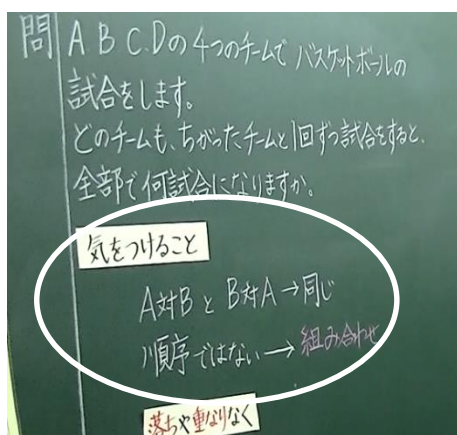 問 A B C.Dの4つのチームでバスケットボールの
試合をします。
どのチームも、ちがったチームと1回ずつ試合をすると、
全部で何試合になりますか。
気をつけること
A対BとB対A→同じ
順序ではない→組み合わせ
落ちや重なりなく